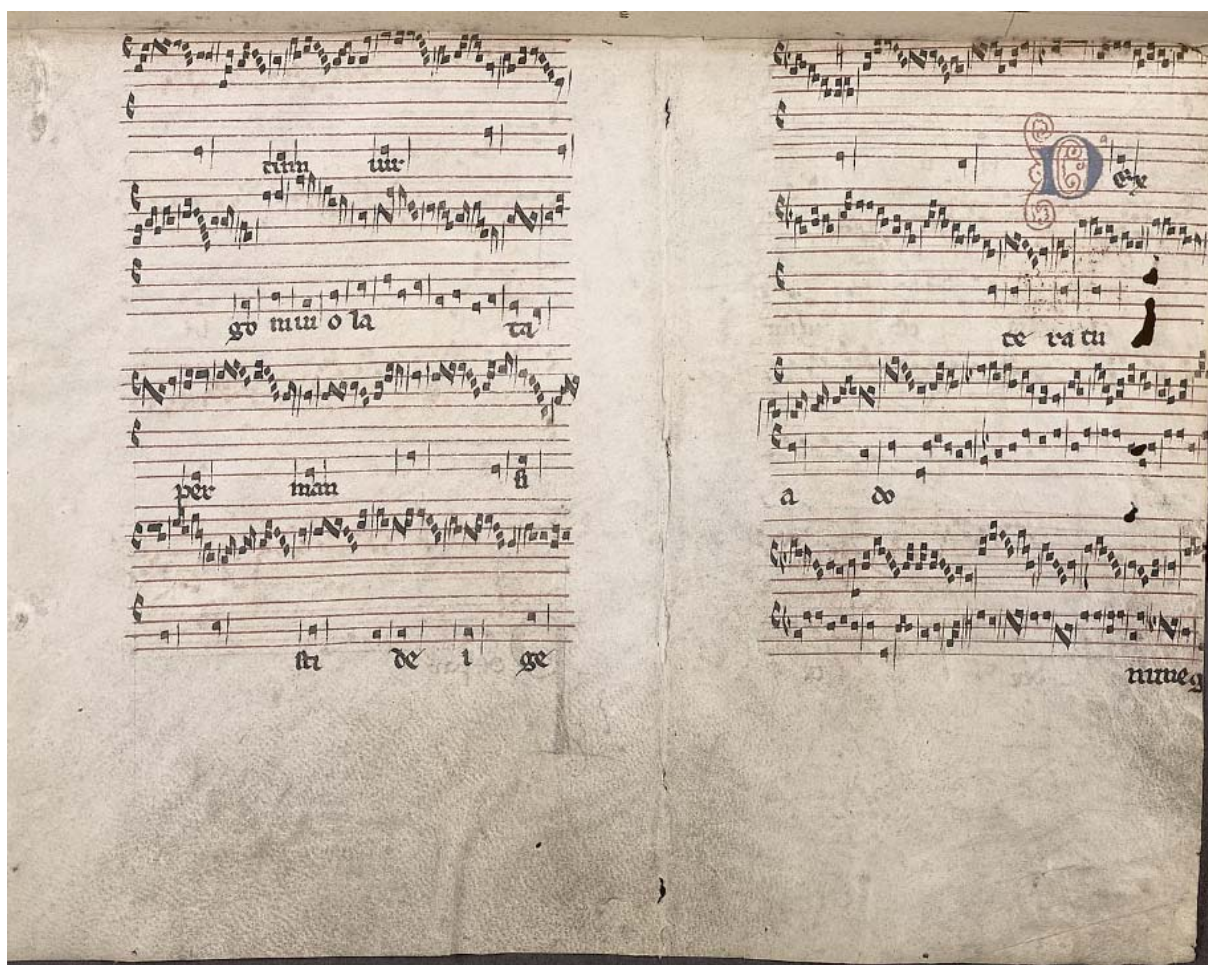 tum uir
go inui o la ta
per man si
sti de i ge
D
te ra tu
a do
mune g